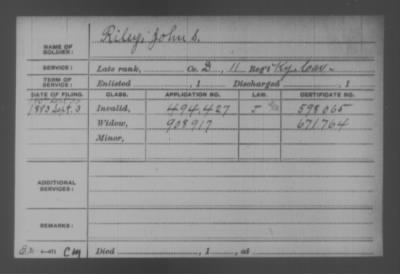 NAME OF SOLDIER: Riley, John S.
SERVICE: Late rank, Co. D, 11 Reg't Ky. Cav.
TERM OF SERVICE: Enlisted , 1 Discharged , 1
DATE OF FILING. CLASS. APPLICATION NO. LAW. CERTIFICATE NO.
1883 Sept. 3 Invalid, 494,427 598,065
Widow, 908917 671764
Minor,
ADDITIONAL SERVICES:
REMARKS:
Died , 1 , at